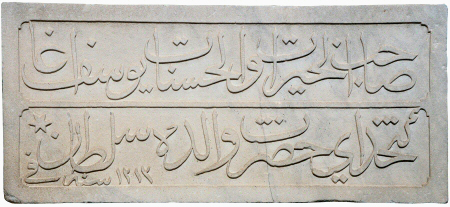 صاحب الخيرات والحسنات يوسف اغا
كتخداى حضرت والده سلطان فى سنه ١٢١٢